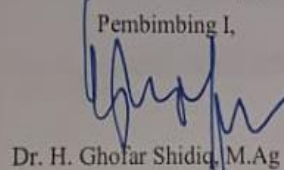 Pembimbing I,
Dr. H. Ghofar Shidiq, M.Ag